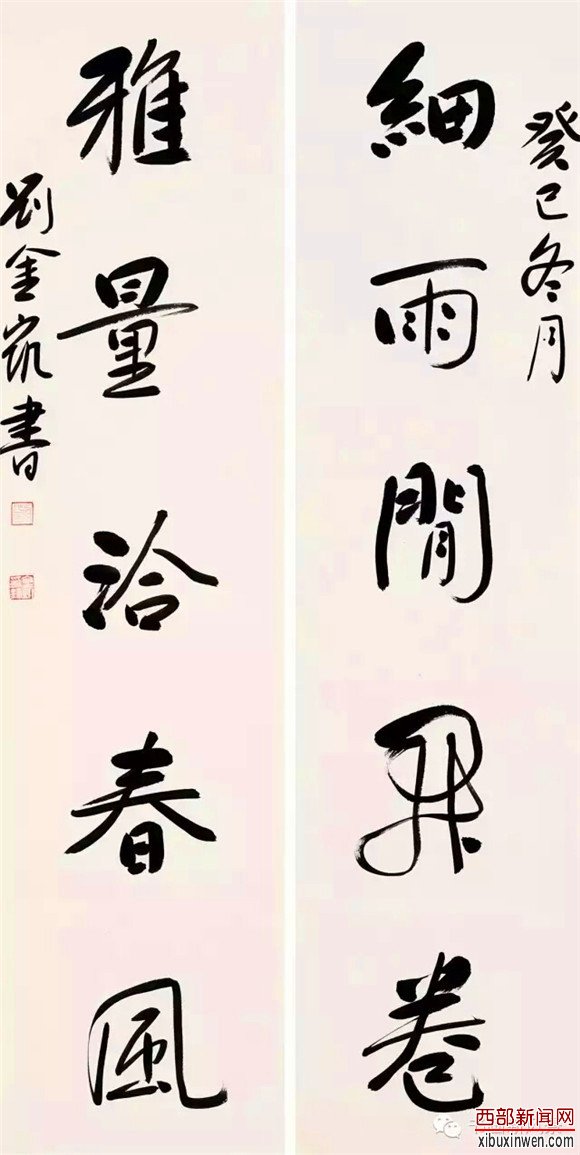 癸巳冬月
細雨閒開卷
雅量洽春風
劉金凱書
西部新闻网
xibuxinwen.com